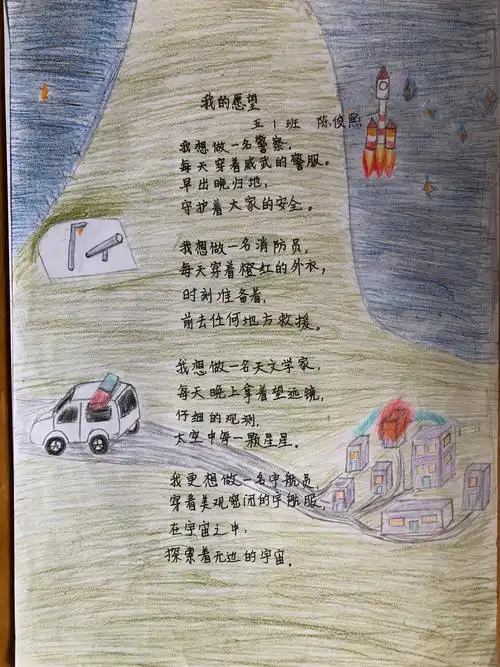 我的愿望
五1班 陈俊熙
我想做一名警察,
每天穿着威武的警服。
早出晚归地,
守护着大家的安全。
我想做一名消防员,
每天穿着橙红的外衣,
时刻准备着,
前去任何地方救援。
我想做一名天文学家,
每天晚上拿着望远镜,
仔细的观测,
太空中每一颗星星。
我更想做一名宇航员,
穿着美观密闭的宇航服,
在宇宙之中,
探索着无边的宇宙。